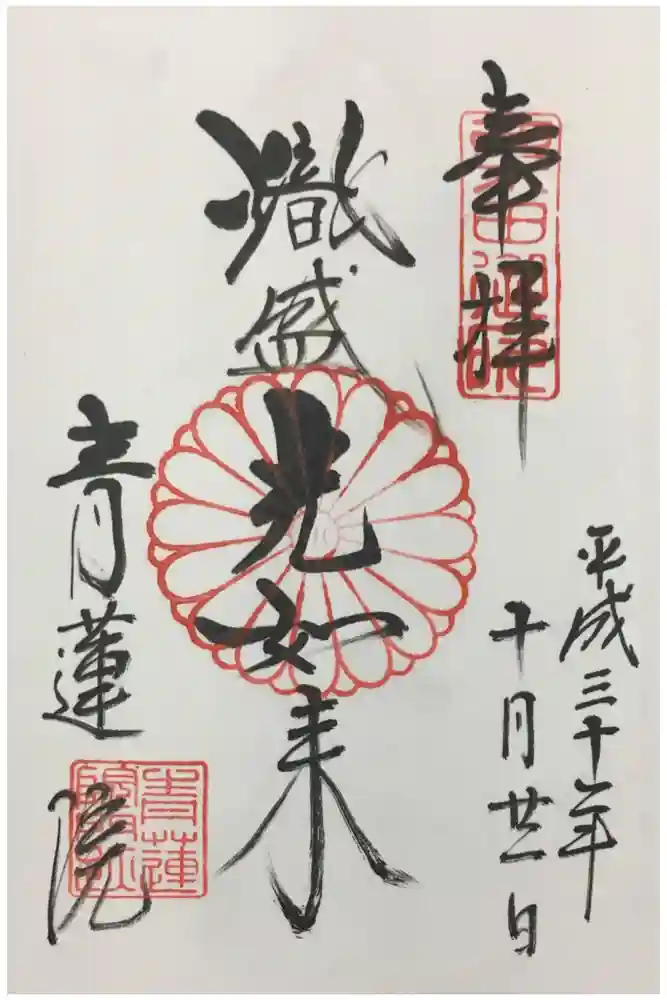 奉拝
平成三十年
十月廿一日
熾盛光如来
青蓮院
青蓮